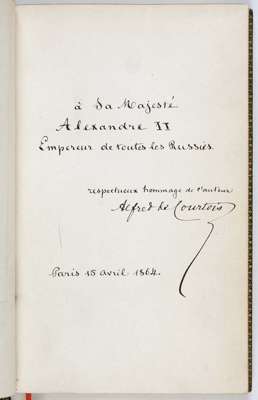 à Sa Majesté
Alexandre II
Empereur de toutes les Russies.
respectueux hommage de l'auteur
Alfred de Courtois
Paris 15 avril 1864.